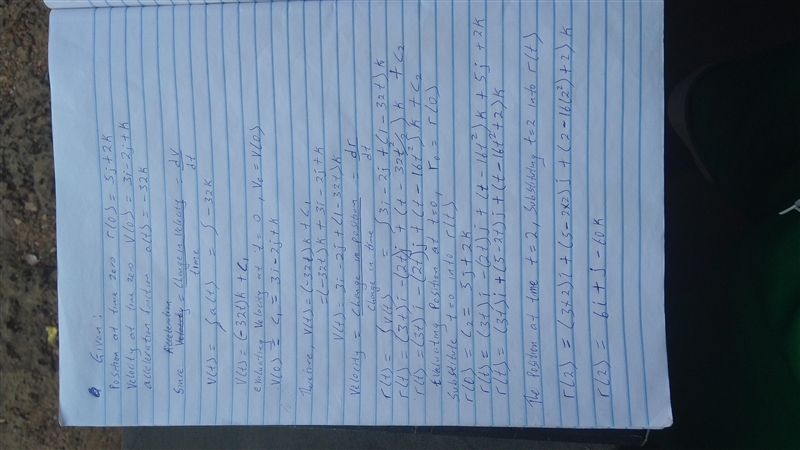 Given:
Position at time zero r(0) = 5j + 2k
Velocity at time zero V(0) = 3i - 2j + k
acceleration function a(t) = -32k
Since Acceleration = Change in Velocity / time = dv / dt
V(t) = ∫ a(t) = ∫ -32k
V(t) = (-32t)k + C₁
evaluating Velocity at t = 0, V₀ = V(0)
V(0) = C₁ = 3i - 2j + k
Therefore, V(t) = (-32t)k + C₁
= (-32t)k + 3i - 2j + k
V(t) = 3i - 2j + (1 - 32t)k
Velocity = Change in position / Change in time = dr / dt
r(t) = ∫ V(t) = ∫ 3i - 2j + (1 - 32t)k
r(t) = (3t)i - (2t)j + (t - 32t²/2)k + C₂
r(t) = (3t)i - (2t)j + (t - 16t²)k + C₂
Evaluating Position at t = 0, r₀ = r(0)
Substitute t = 0 into r(t)
r(0) = C₂ = 5j + 2k
r(t) = (3t)i - (2t)j + (t - 16t²)k + 5j + 2k
r(t) = (3t)i + (5 - 2t)j + (t - 16t² + 2)k
The Position at time t = 2, Substituting t = 2 into r(t)
r(2) = (3×2)i + (5 - 2×2)j + (2 - 16(2²) + 2)k
r(2) = 6i + j - 60k